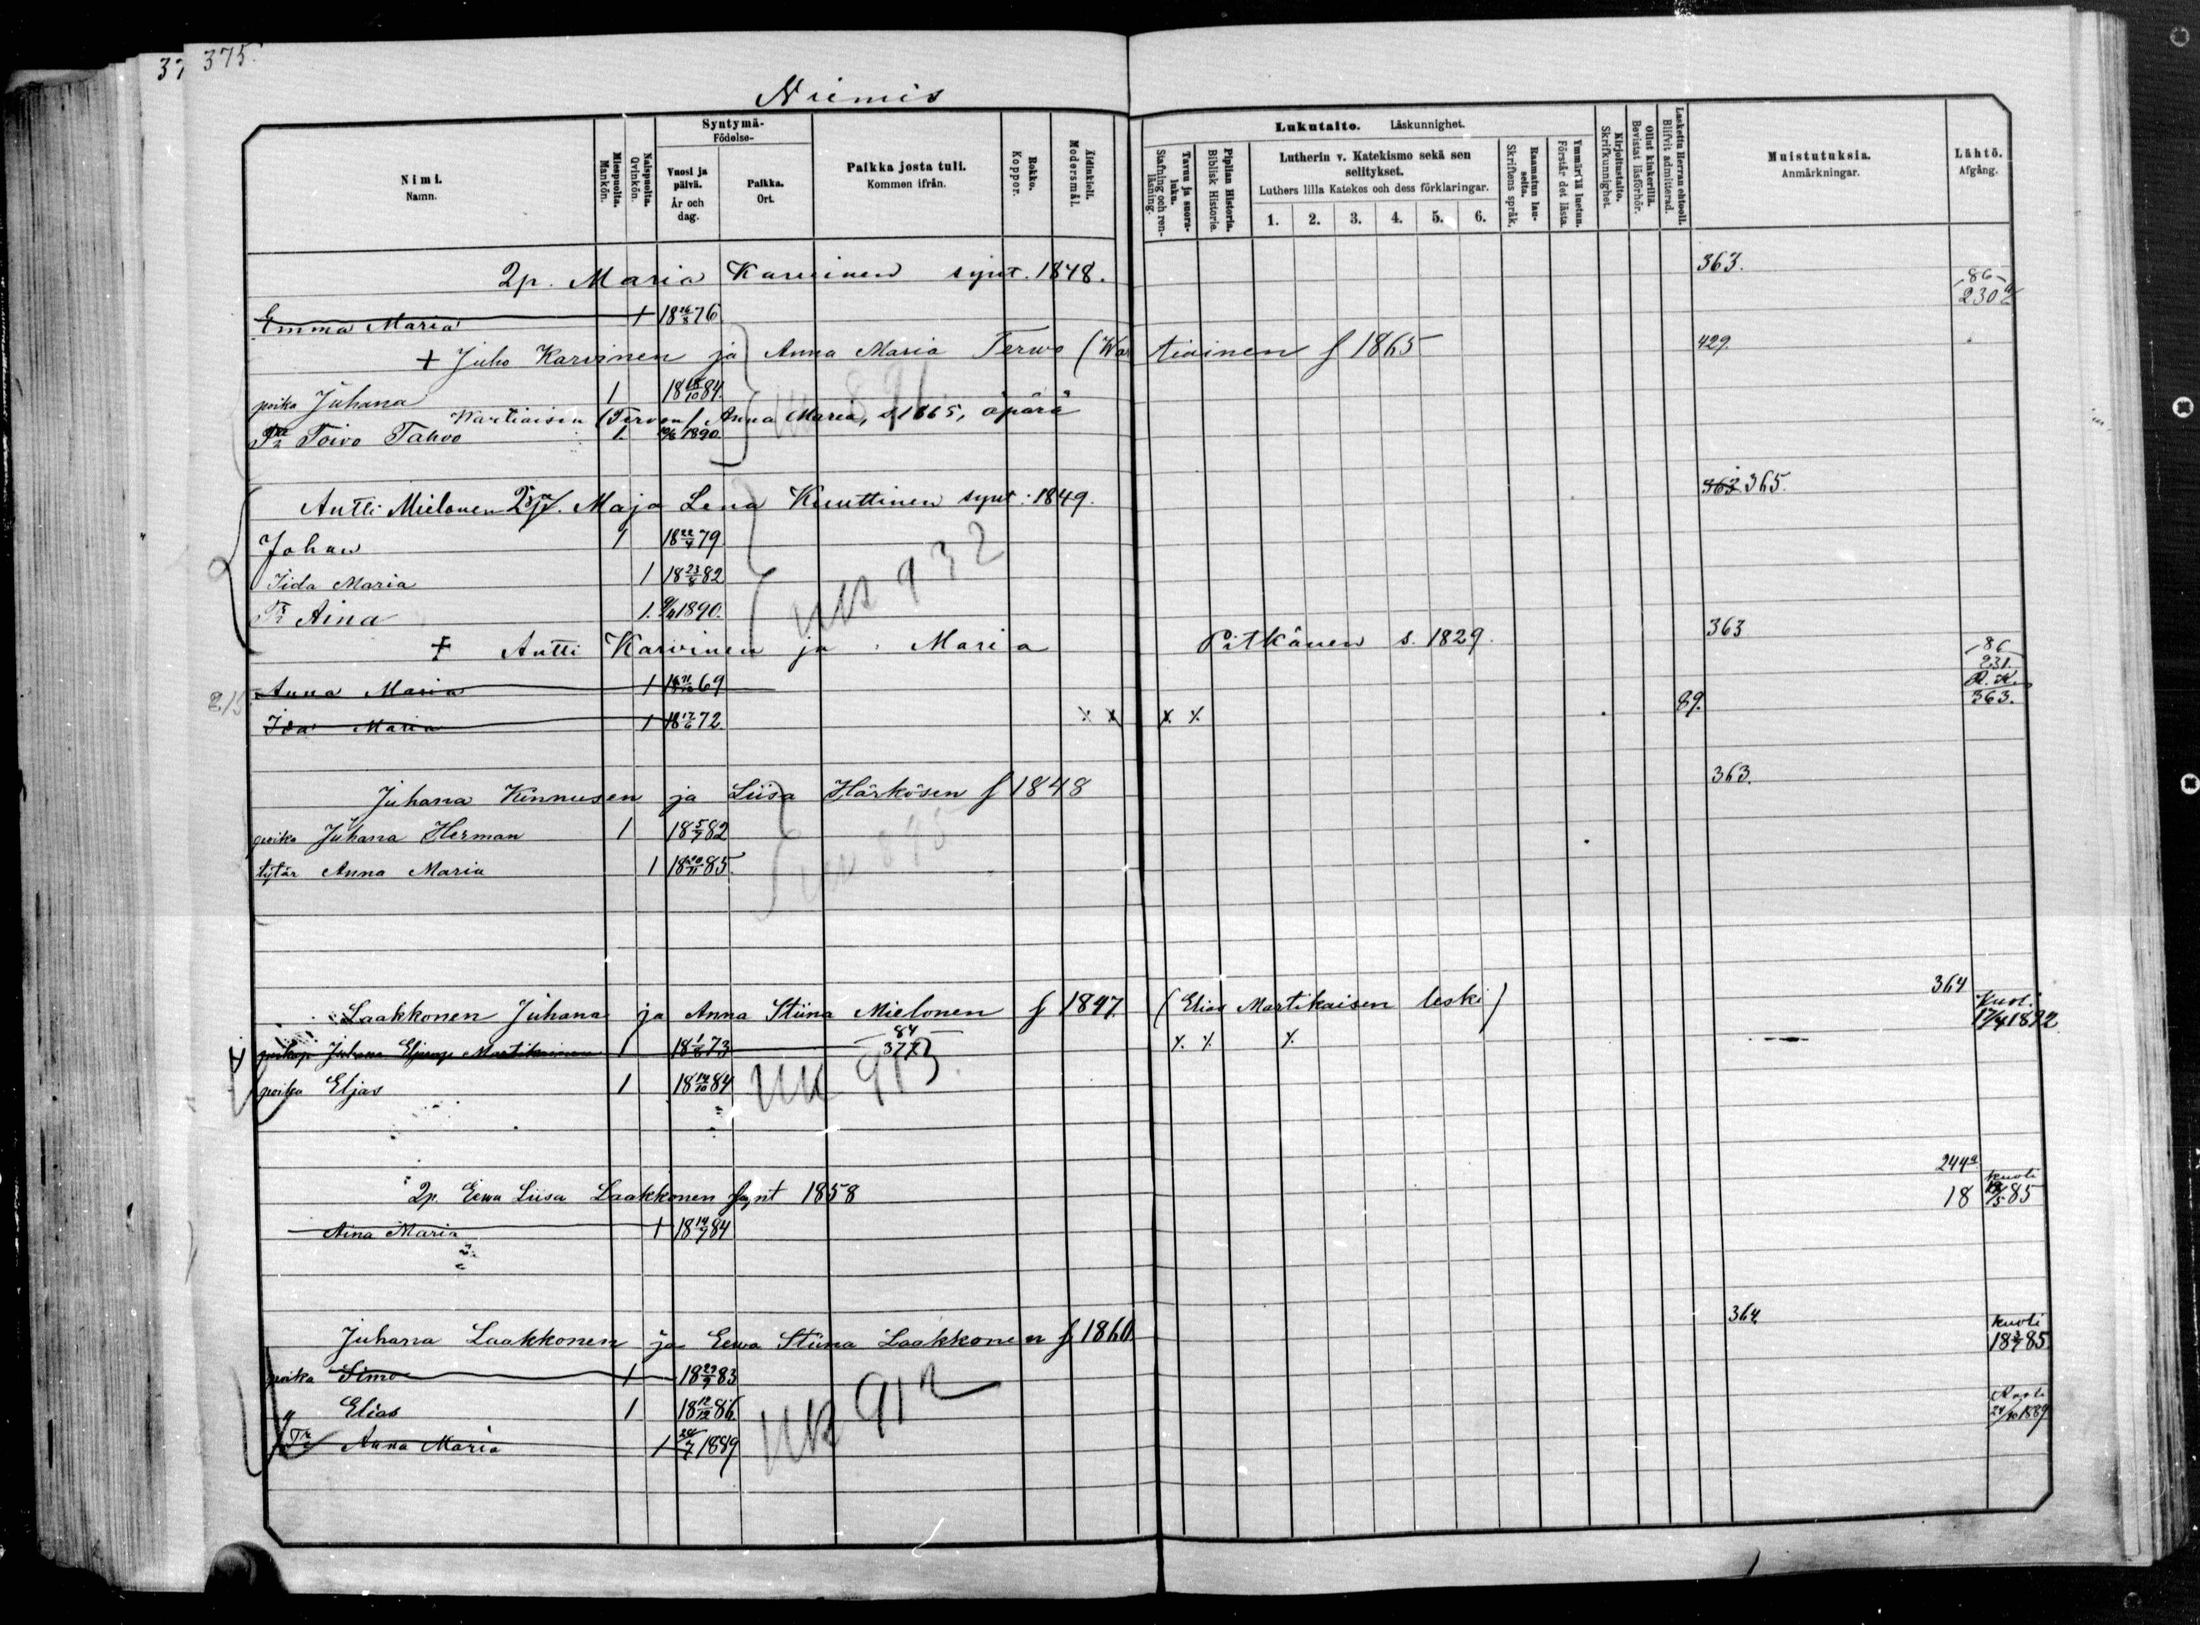 375.
Niemis
Nimi. Namn.
Miespuolta. Mankön.
Naispuolta. Qvinkön.
Syntymä- Födelse-
Vuosi ja päivä. År och dag.
Paikka. Ort.
Paikka josta tuli. Kommen ifrån.
Rokko. Koppor.
Äidinkieli. Modersmål.
Lukutaito. Läskunnighet.
Tavuu ja suora-luku. Stafning och ren-läsning.
Piplian Historia. Biblisk Historie.
Lutherin v. Katekismo sekä sen selitykset.
Luthers lilla Katekes och dess förklaringar.
1. 2. 3. 4. 5. 6.
Raamatun lau-seita. Skriftens språk.
Ymmärtää luetun. Förstår det lästa.
Kirjoitustaito. Skrifkunnighet.
Ollut kinkerillä. Bevistat läsförhör.
Laskettu Herran ehtooll. Blifvit admitterad.
Muistutuksia. Anmärkningar.
Lähtö. Afgång.
2p. Maria Karvinen synt. 1848. 363.
Emma Maria 1 1876 86 230
+ Juho Karvinen ja Anna Maria Terwo (Wartiainen f 1865 429.
poika Juhana 1 18 18/10 84.
Wartiaisen (Terven) Anna Maria, s. 1865, äpärä
Toivo Tahvo 1. 1890.
Antti Mielonen 2p. Maja Lena Kuuttinen synt: 1849. 363 365.
Johan 1 18 22/4 79
Iida Maria 1 18 23/8 82
Tr Aina 1. 1890. UK 932
+ Antti Karvinen ja Maria Pitkänen s. 1829. 363
Anna Maria 1 69 86 231.
Ida Maria 1 18 17/6 72. x x x x 89. R. K. 363.
Juhana Kinnusen ja Liisa Härkösen f 1848 363.
poika Juhana Herman 1 18 5/7 82
tytär Anna Maria 1 18 20/11 85.
Laakkonen Juhana ja Anna Stiina Mielonen f 1847 (Elias Martikaisen leski) 364
poikap Juhana Martikainen 1 18 1/8 73 84 377 x. x. x. kuol. 17/4 1892
poika Eljas 1 18 19/10 84 UK 913.
2p. Eewa Liisa Laakkonen synt 1858 244a
Aina Maria 1 18 14/9 84 kuoli 18 85
Juhana Laakkonen ja Eewa Stiina Laakkonen f 1860 364
poika Simo 1 18 29/9 83 kuoli 18 85.
" Elias 1 18 12/12 86 UK 912
Tr Anna Maria 1 24/7 1889 Kuoli 24/10 1889